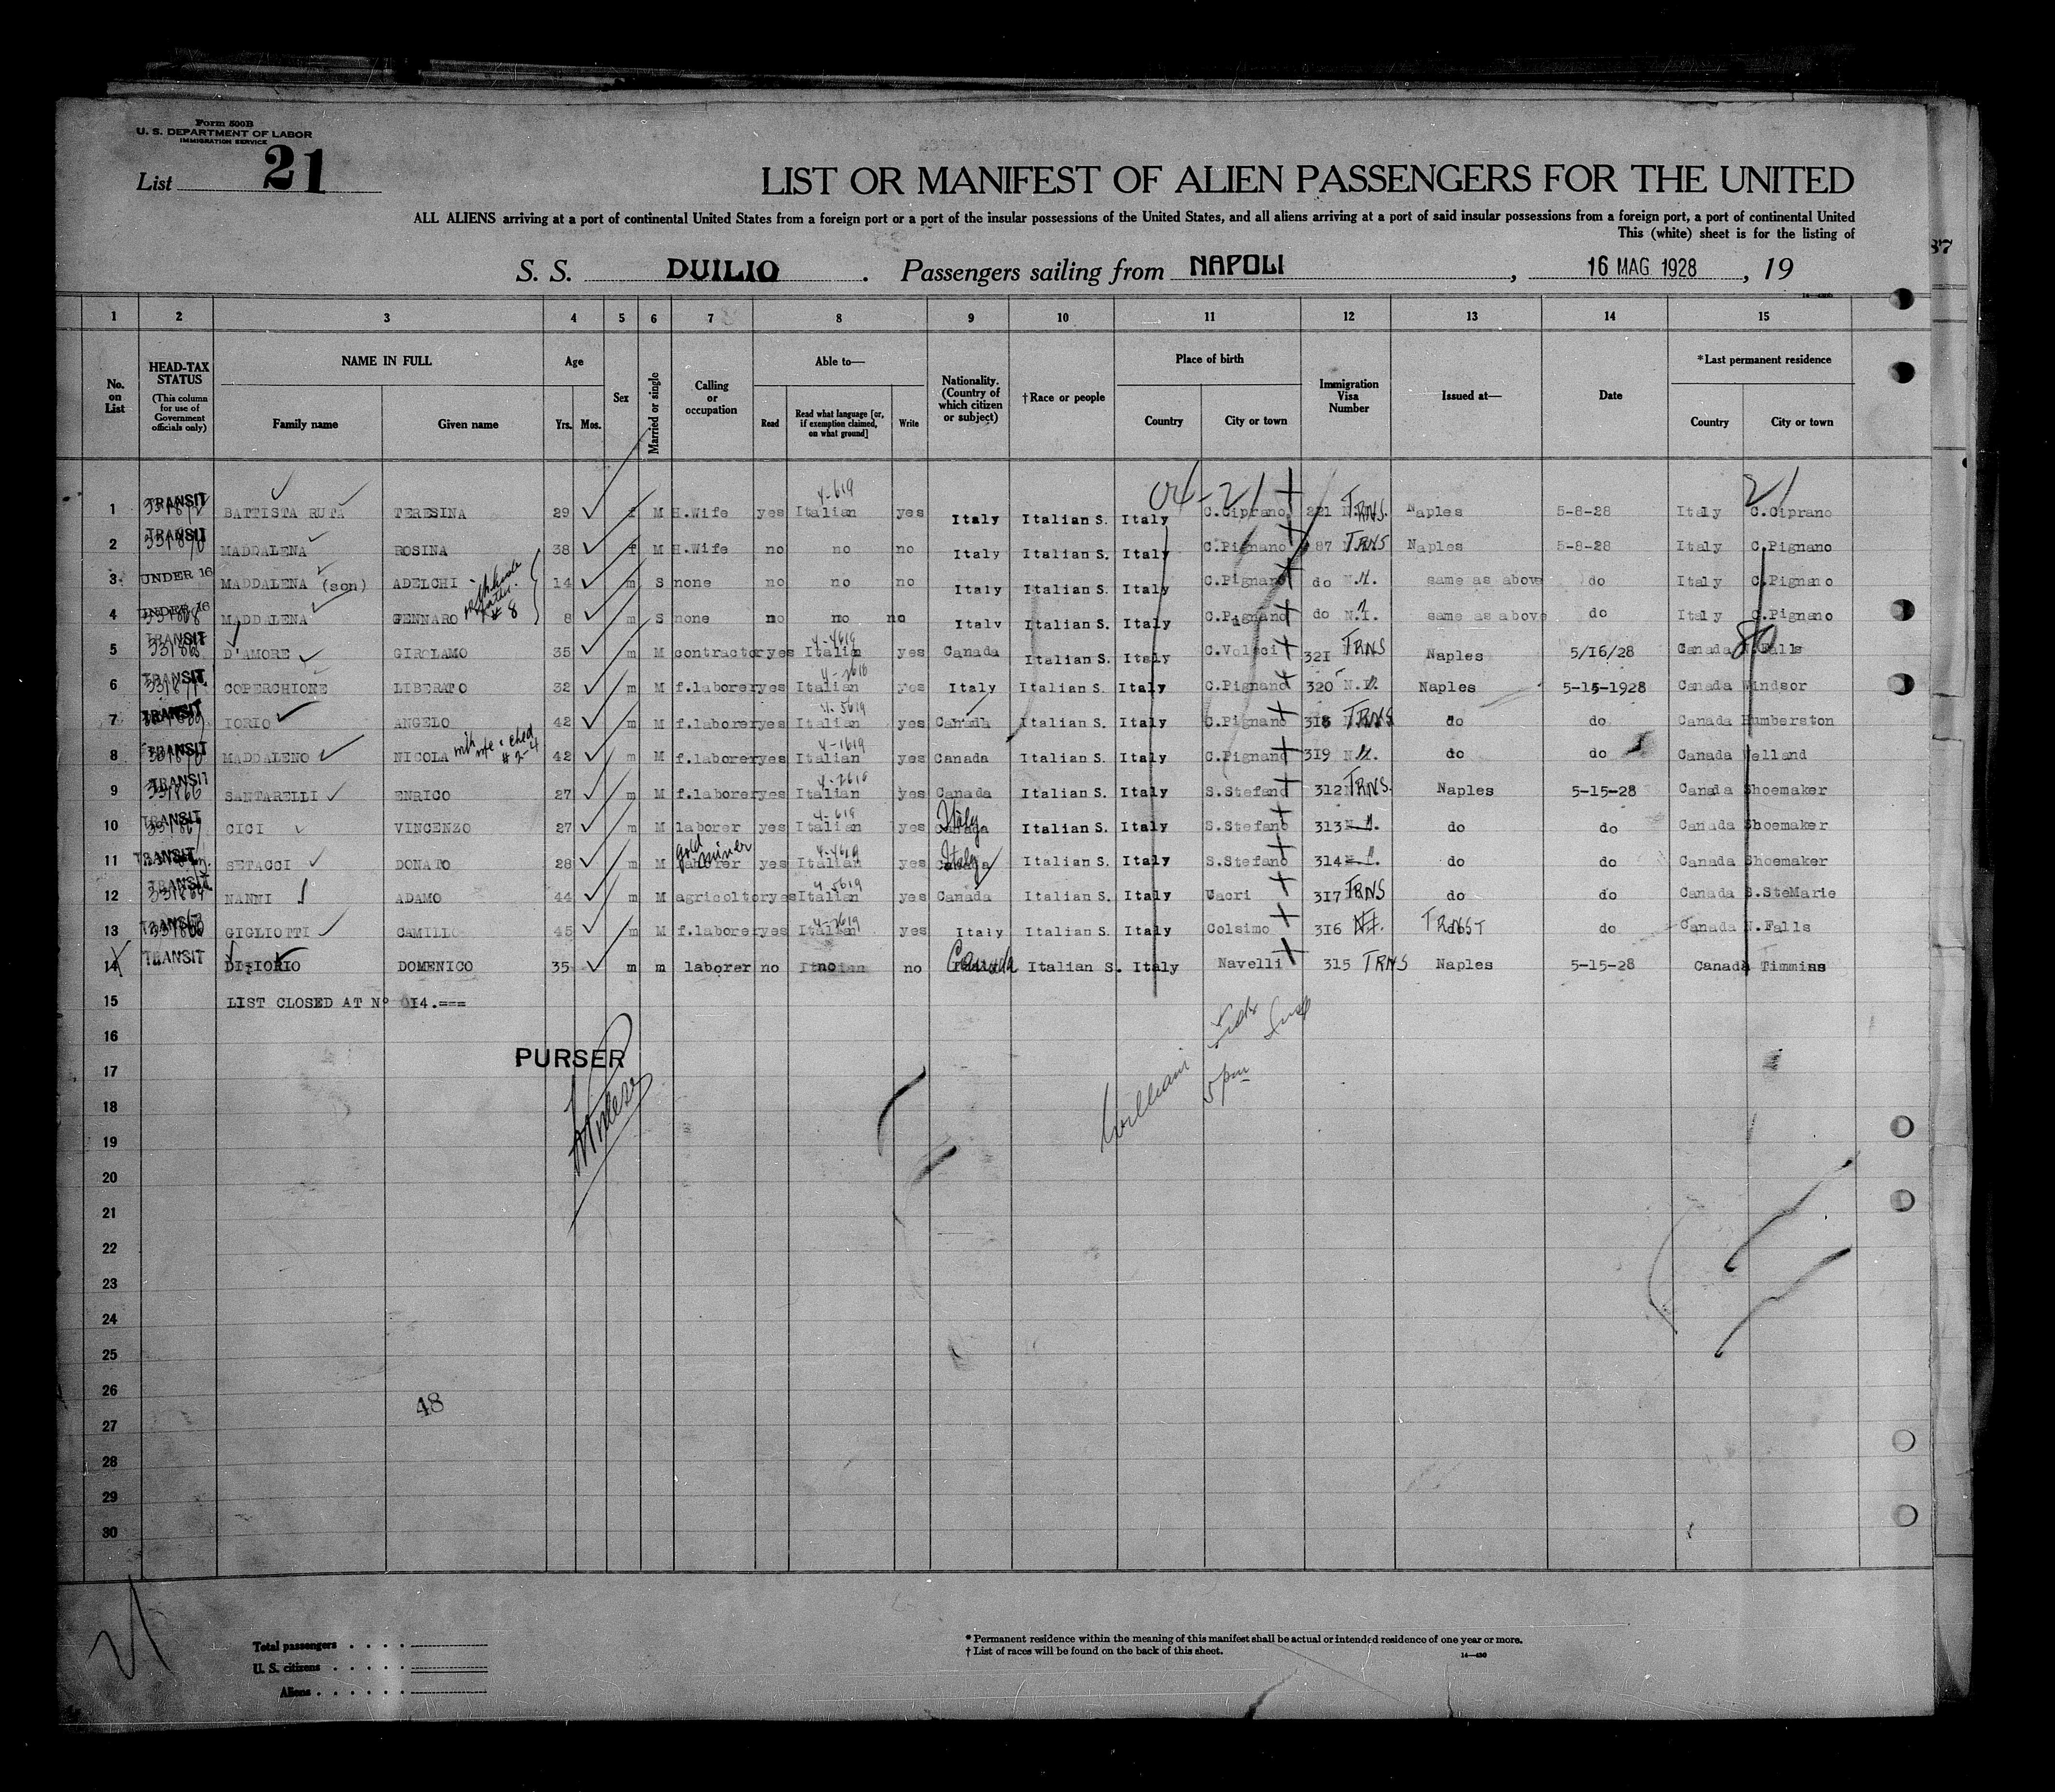 Form 500B
U. S. DEPARTMENT OF LABOR
IMMIGRATION SERVICE
List 21
LIST OR MANIFEST OF ALIEN PASSENGERS FOR THE UNITED
ALL ALIENS arriving at a port of continental United States from a foreign port or a port of the insular possessions of the United States, and all aliens arriving at a port of said insular possessions from a foreign port, a port of continental United
This (white) sheet is for the listing of
37
S. S. DUILIO. Passengers sailing from NAPOLI, 16 MAG 1928, 19
1 2 3 4 5 6 7 8 9 10 11 12 13 14 15
No. on List
HEAD-TAX STATUS (This column for use of Government officials only)
NAME IN FULL
Family name Given name
Age
Yrs. Mos.
Sex
Married or single
Calling or occupation
Able to—
Read
Read what language [or, if exemption claimed, on what ground]
Write
Nationality. (Country of which citizen or subject)
†Race or people
Place of birth
Country City or town
Immigration Visa Number
Issued at—
Date
*Last permanent residence
Country City or town
4-619 04-21 21
1 TRANSIT BATTISTA RUTA TERESINA 29 f M H.Wife yes Italian yes Italy Italian S. Italy C.Ciprano 221 TRNS. Naples 5-8-28 Italy C.Ciprano
2 TRANSIT MADDALENA ROSINA 38 f M H.Wife no no no Italy Italian S. Italy C.Pignano 87 TRNS Naples 5-8-28 Italy C.Pignano
3 UNDER 16 MADDALENA (son) ADELCHI 14 m S none no no no Italy Italian S. Italy C.Pignano do same as above do Italy C.Pignano
4 UNDER 16 MADDALENA GENNARO # 8 8 m S none no no no Italy Italian S. Italy C.Pignano do N.I. same as above do Italy C.Pignano
5 TRANSIT D'AMORE GIROLAMO 35 m M contractor yes Italian yes Canada Italian S. Italy C.Volsci 321 TRNS Naples 5/16/28 Canada N.Falls
6 TRANSIT COPERCHIONE LIBERATO 32 m M f.laborer yes Italian yes Italy Italian S. Italy C.Pignano 320 Naples 5-15-1928 Canada Windsor
7 TRANSIT IORIO ANGELO 42 m M f.laborer yes Italian yes Canada Italian S. Italy C.Pignano 318 TRNS do do Canada Humberston
8 TRANSIT MADDALENO NICOLA with wife & child # 2-4 42 m M f.laborer yes Italian yes Canada Italian S. Italy C.Pignano 319 do do Canada Welland
9 TRANSIT SANTARELLI ENRICO 27 m M f.laborer yes Italian yes Canada Italian S. Italy S.Stefano 312 TRNS. Naples 5-15-28 Canada Shoemaker
10 TRANSIT CICI VINCENZO 27 m M laborer yes Italian yes Italy Italian S. Italy S.Stefano 313 do do Canada Shoemaker
11 TRANSIT SETACCI DONATO 28 m M gold miner yes Italian yes Italy Italian S. Italy S.Stefano 314 do do Canada Shoemaker
12 TRANSIT NANNI ADAMO 44 m M agricoltor yes Italian yes Canada Italian S. Italy 317 TRNS do do Canada S.SteMarie
13 TRANSIT GIGLIOTTI CAMILLO 45 m M f.laborer yes Italian yes Italy Italian S. Italy Colsimo 316 do Canada N.Falls
14 TRANSIT DI IORIO DOMENICO 35 m m laborer no no no Canada Italian S. Italy Navelli 315 TRNS Naples 5-15-28 Canada Timmins
15 LIST CLOSED AT Nº 014.===
16
PURSER
17
William 5 pm
18
19
20
21
22
23
24
25
26
48
27
28
29
30
21
Total passengers
U. S. citizens
Aliens
* Permanent residence within the meaning of this manifest shall be actual or intended residence of one year or more.
† List of races will be found on the back of this sheet.
14—430